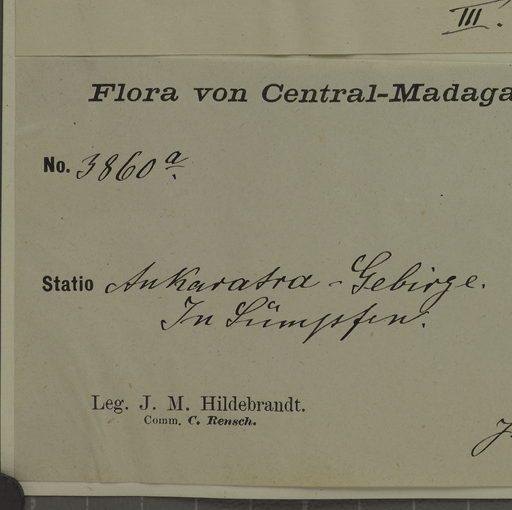 III.
Flora von Central-Madaga
No. 3860 a.
Statio Ankaratra - Gebirge.
In Sümpfen.
Leg. J. M. Hildebrandt.
Comm. C. Rensch.